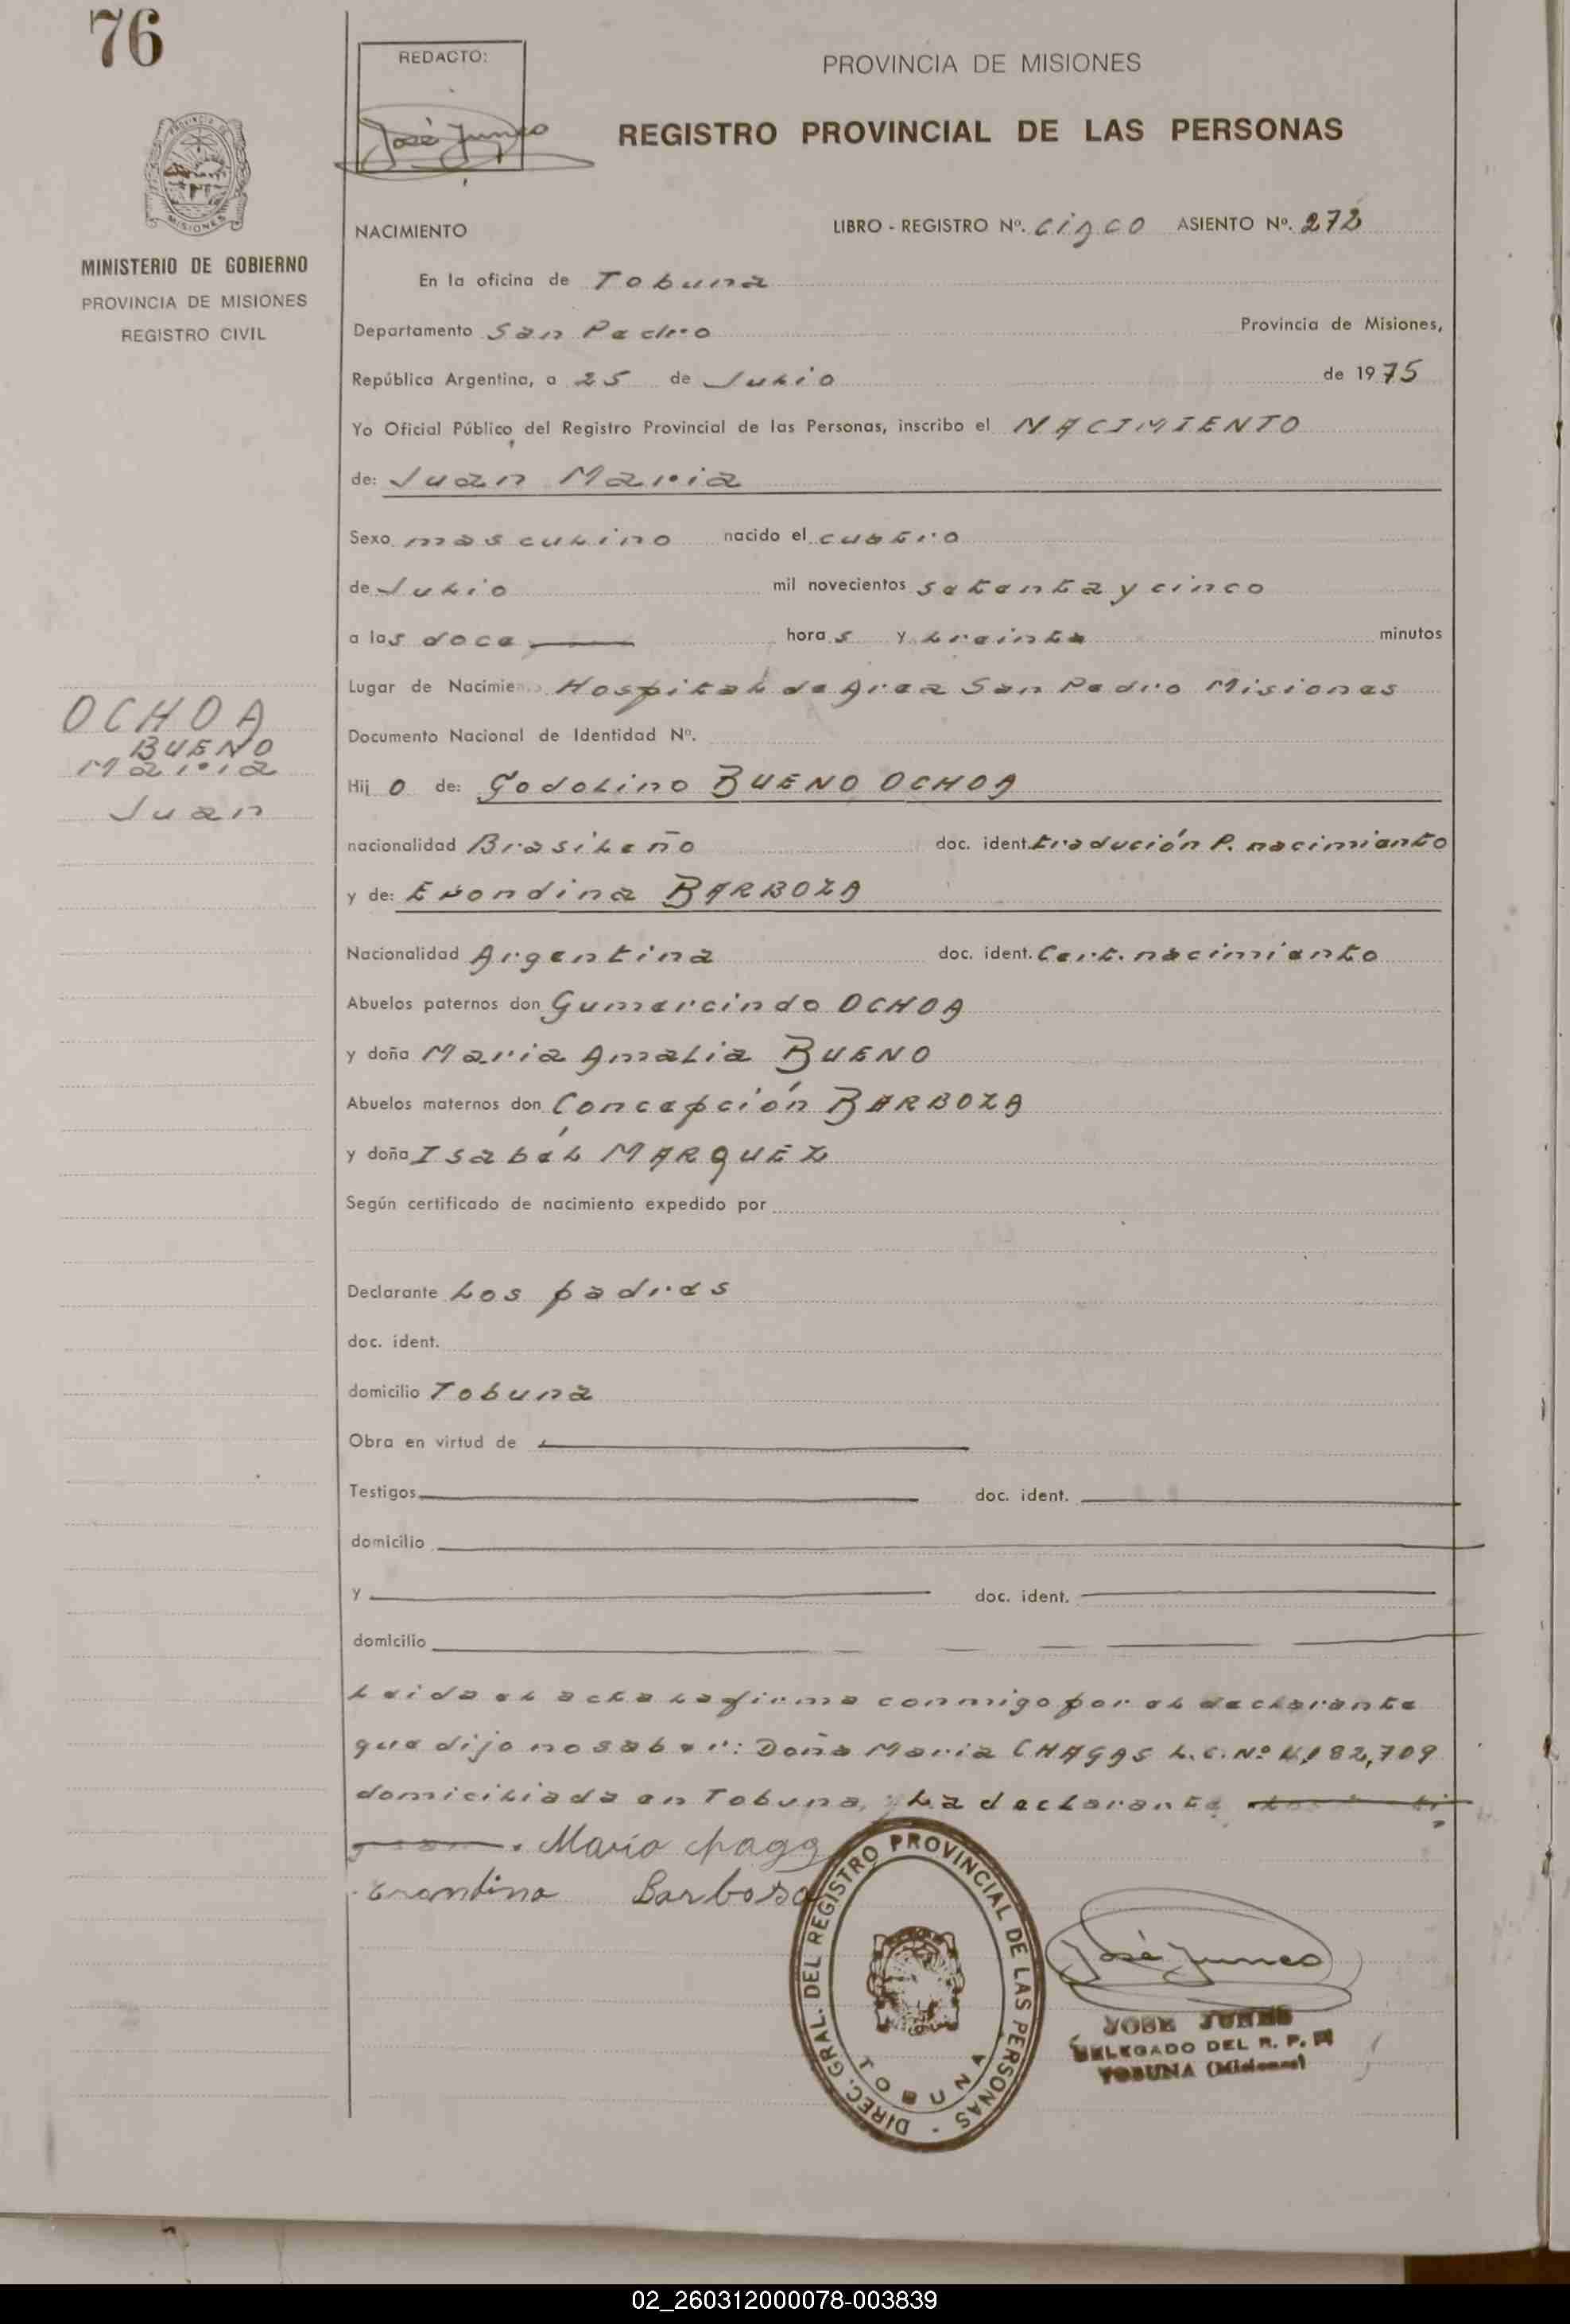 76
REDACTO:
José Junco
PROVINCIA DE MISIONES
REGISTRO PROVINCIAL DE LAS PERSONAS
PROVINCIA DE
MISIONES
MINISTERIO DE GOBIERNO
PROVINCIA DE MISIONES
REGISTRO CIVIL
NACIMIENTO LIBRO - REGISTRO Nº. cinco ASIENTO Nº. 272
En la oficina de Tobuna
Departamento San Pedro Provincia de Misiones,
República Argentina, a 25 de Julio de 1975
Yo Oficial Público del Registro Provincial de las Personas, inscribo el NACIMIENTO
de: Juan Maria
Sexo masculino nacido el cuatro
de Julio mil novecientos setenta y cinco
a las doce horas y treinta minutos
Lugar de Nacimie Hospital de Area San Pedro Misiones
OCHOA
BUENO
Maria
Juan
Documento Nacional de Identidad Nº.
Hijo de: Godolino BUENO OCHOA
nacionalidad Brasileño doc. ident. tradución P. nacimiento
y de: Erondina BARBOZA
Nacionalidad Argentina doc. ident. Cert. nacimiento
Abuelos paternos don Gumercindo OCHOA
y doña Maria Amalia BUENO
Abuelos maternos don Concepción BARBOZA
y doña Isabél MARQUEZ
Según certificado de nacimiento expedido por
Declarante Los padres
doc. ident.
domicilio Tobuna
Obra en virtud de
Testigos doc. ident.
domicilio
y doc. ident.
domicilio
Leida el acta la firma conmigo por el declarante
que dijo no saber: Doña Maria CHAGAS L.C. Nº 4,182,709
domiciliada en Tobuna, y La declarante
Mario chaga
Erondina Barbosa
DIREC. GRAL. DEL REGISTRO PROVINCIAL DE LAS PERSONAS -
TOBUNA
José Junco
JOSE
DELEGADO DEL R. P. P.
TOBUNA (Misiones)
02_260312000078-003839